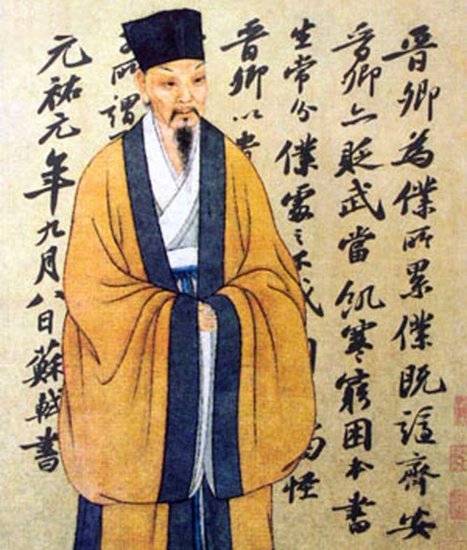 晉卿為僕所累僕既謫齊安
晉卿亦貶武當飢寒窮困本書
生常分僕處
不
怪
晉卿以貴
所謂
元祐元年九月八日蘇軾書